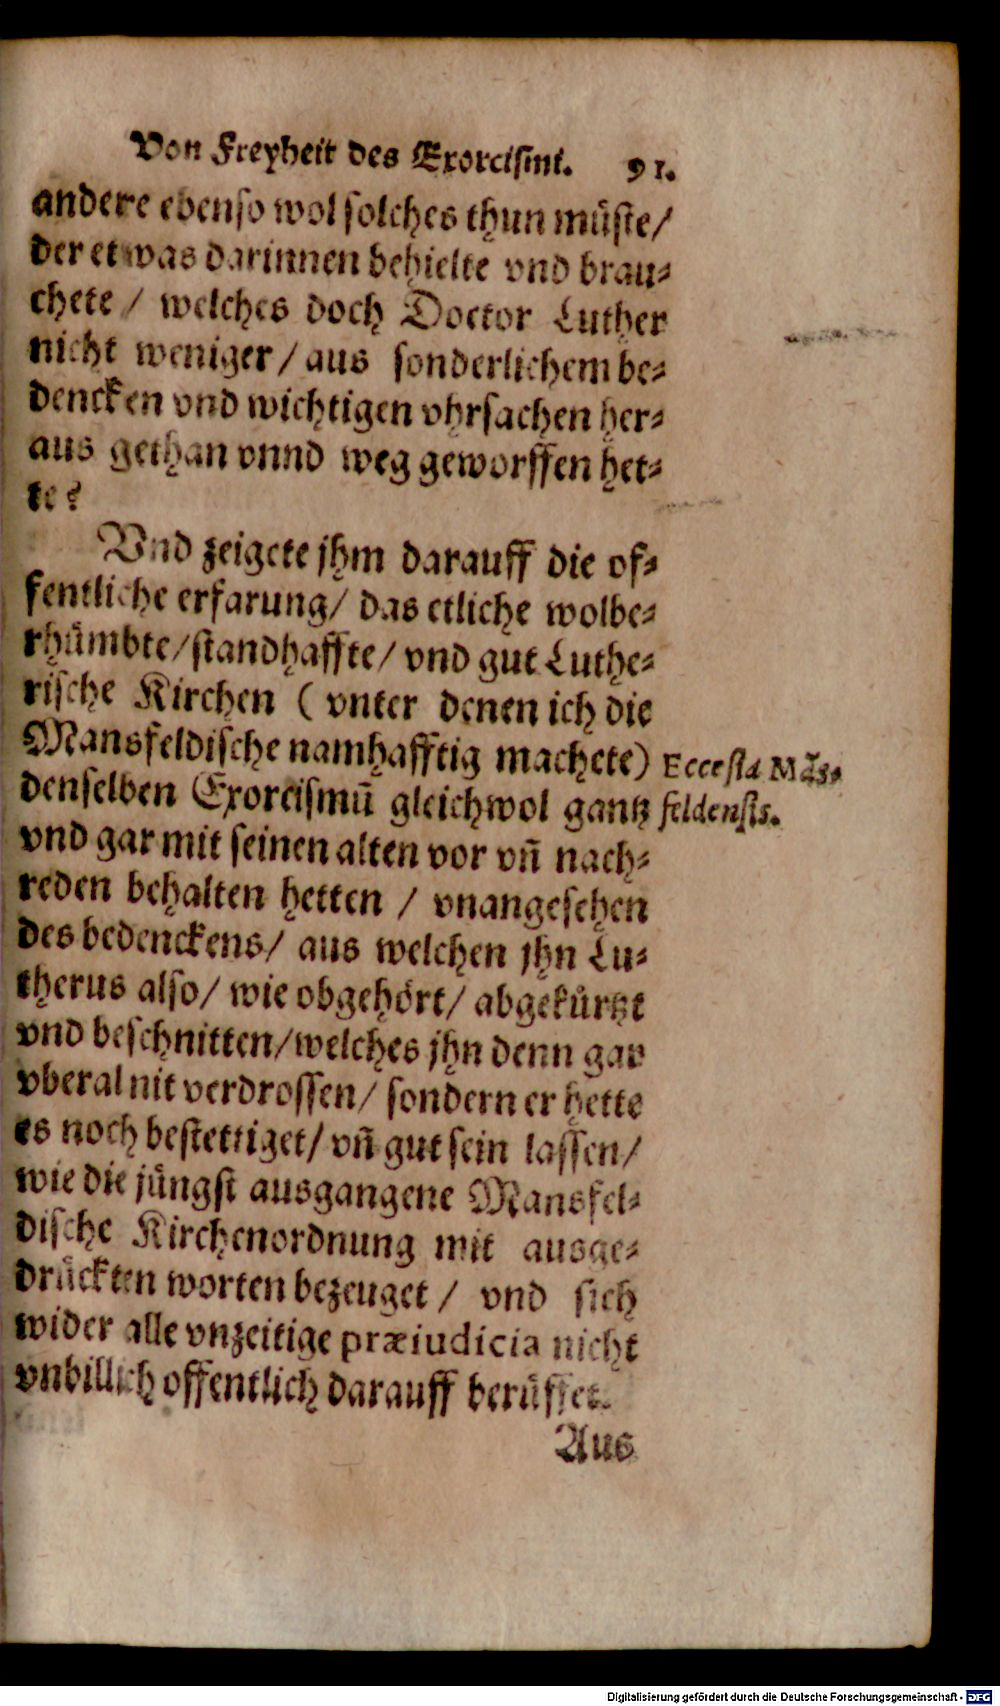 Von Freyheit des Exorcismi. 91.
andere ebenso wol solches thun müste/
der etwas darinnen behielte vnd brau-
chete / welches doch Doctor Luther
nicht weniger / aus sonderlichem be-
dencken vnd wichtigen vhrsachen her-
aus gethan vnnd weg geworffen het-
te?
Vnd zeigete jhm darauff die of-
fentliche erfarung/ das etliche wolbe-
rhümbte/standhaffte/ vnd gut Luthe-
rische Kirchen ( vnter denen ich die
Mansfeldische namhafftig machete)
Eccesia Mãs-
denselben Exorcismũ gleichwol gantz
feldensis.
vnd gar mit seinen alten vor vñ nach-
reden behalten hetten / vnangesehen
des bedenckens/ aus welchen jhn Lu-
therus also/ wie obgehört/ abgekürtzt
vnd beschnitten/welches jhn denn gar
vberal nit verdrossen/ sondern er hette
es noch bestettiget/ vñ gut sein lassen/
wie die jüngst ausgangene Mansfel-
dische Kirchenordnung mit ausge-
drückten worten bezeuget / vnd sich
wider alle vnzeitige præiudicia nicht
vnbillich offentlich darauff berüffet.
Aus
Digitalisierung gefördert durch die Deutsche Forschungsgemeinschaft - DFG